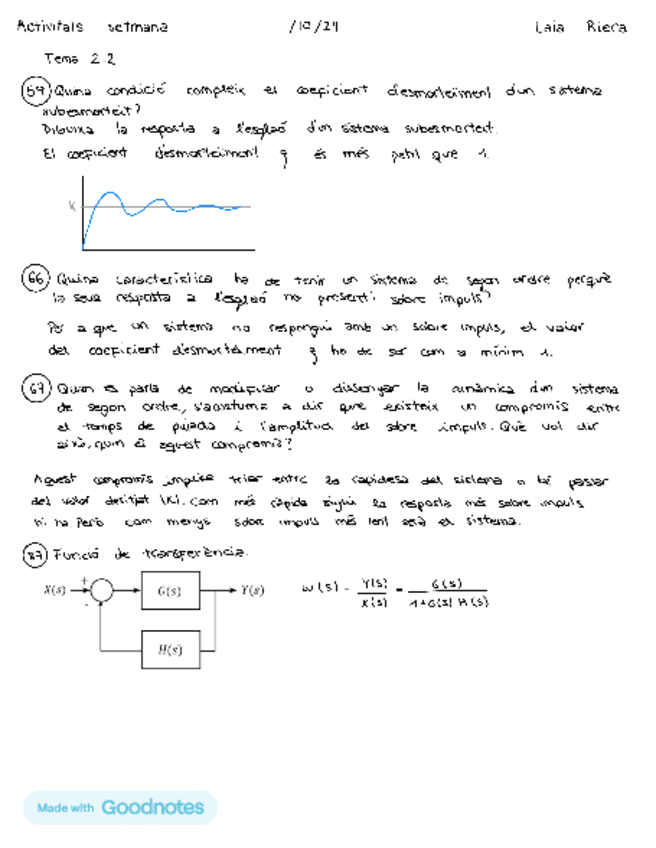 Activitats setmana /10/24 Laia Riera
Tema 2.2
59 Quina condició compleix el coeficient d'esmorteïment d'un sistema
subesmorteït?
Dibuixa la resposta a l'esglaó d'un sistema subesmorteït.
El coeficient d'esmorteïment ζ és més petit que 1.
K
66 Quina característica ha de tenir un sistema de segon ordre perquè
la seva resposta a l'esglaó no presenti sobre impuls?
Per a que un sistema no respongui amb un sobre impuls, el valor
del coeficient d'esmorteïment ζ ha de ser com a mínim 1.
67 Quan es parla de modificar o dissenyar la dinàmica d'un sistema
de segon ordre, s'acostuma a dir que existeix un compromís entre
el temps de pujada i l'amplitud del sobre impuls. Què vol dir
això, quin és aquest compromís?
Aquest compromís implica triar entre la rapidesa del sistema o bé passar
del valor desitjat (K). Com més ràpida sigui la resposta més sobre impuls
hi ha però com menys sobre impuls més lent serà el sistema.
87 Funció de transferència.
X(s) + - G(s) Y(s)
H(s)
W(s) = Y(s)/X(s) = G(s)/1+G(s) H(s)
Made with Goodnotes